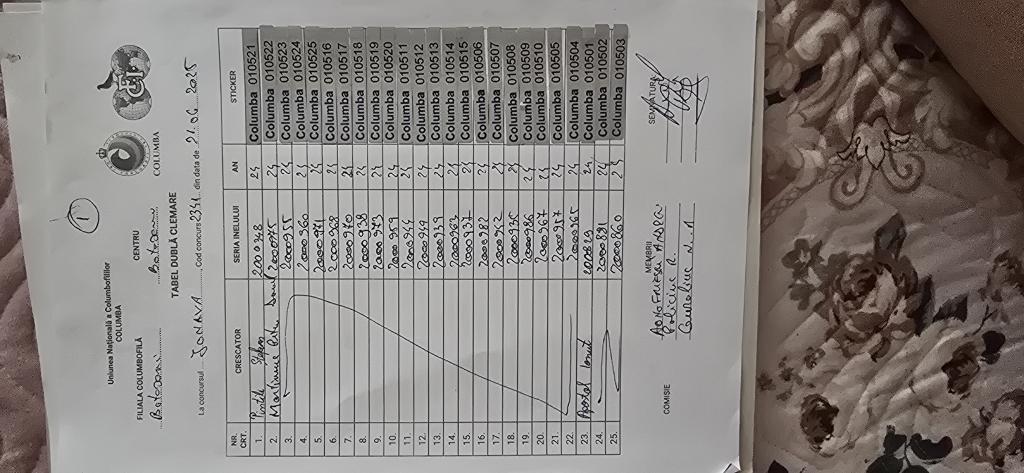 1
Uniunea Națională a Columbofililor
COLUMBA
FILIALA COLUMBOFILĂ CENTRU COLUMBA
Botoșani Botoșani
TABEL DUBLĂ CLEMARE
La concursul JONAVA Cod concurs 2341 din data de 21.06.2025
NR. CRT. CRESCATOR SERIA INELULUI AN STICKER
1. 2000348 24 Columba 010521
2. Martiniuc 2000975 24 Columba 010522
3. 2000955 24 Columba 010523
4. 2000960 24 Columba 010524
5. 2000971 24 Columba 010525
6. 2000968 24 Columba 010516
7. 2000970 24 Columba 010517
8. 2000938 24 Columba 010518
9. 2000973 24 Columba 010519
10. 2000959 24 Columba 010520
11. 2000944 24 Columba 010511
12. 2000949 24 Columba 010512
13. 2000939 24 Columba 010513
14. 2000963 24 Columba 010514
15. 2000937 24 Columba 010515
16. 2000982 24 Columba 010506
17. 2000942 24 Columba 010507
18. 2000935 24 Columba 010508
19. 2000986 24 Columba 010509
20. 2000967 24 Columba 010510
21. 2000957 24 Columba 010505
22. 2000965 24 Columba 010504
23. Apostol Ionut 2000829 24 Columba 010501
24. 24 Columba 010502
25. 2000860 24 Columba 010503
COMISIE MEMBRII SEMNATURA